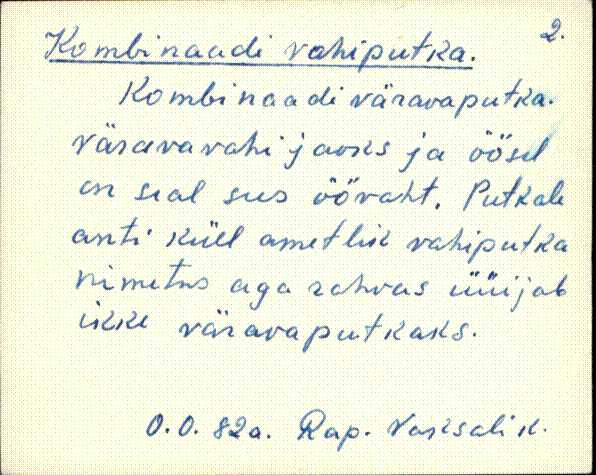 2.
Kombinaadi vahiputka.
Kombinaadi väravaputka.
Väravavahi jaoks ja öösel
on seal sees öövaht. Putkale
anti küll ametlik vahiputka
nimetus aga rahvas üüijab
ikke väravaputkaks.
O.O. 82a. Rap. Vaksali k.